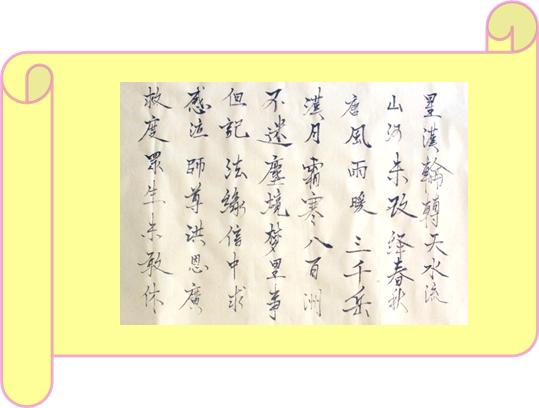 星漢輪轉天水流
山河未改经春秋
唐風雨暖三千岳
漢月霜寒八百洲
不迷塵境梦里事
但記法緣信中求
感泣師尊洪恩廣
救度眾生未敢休